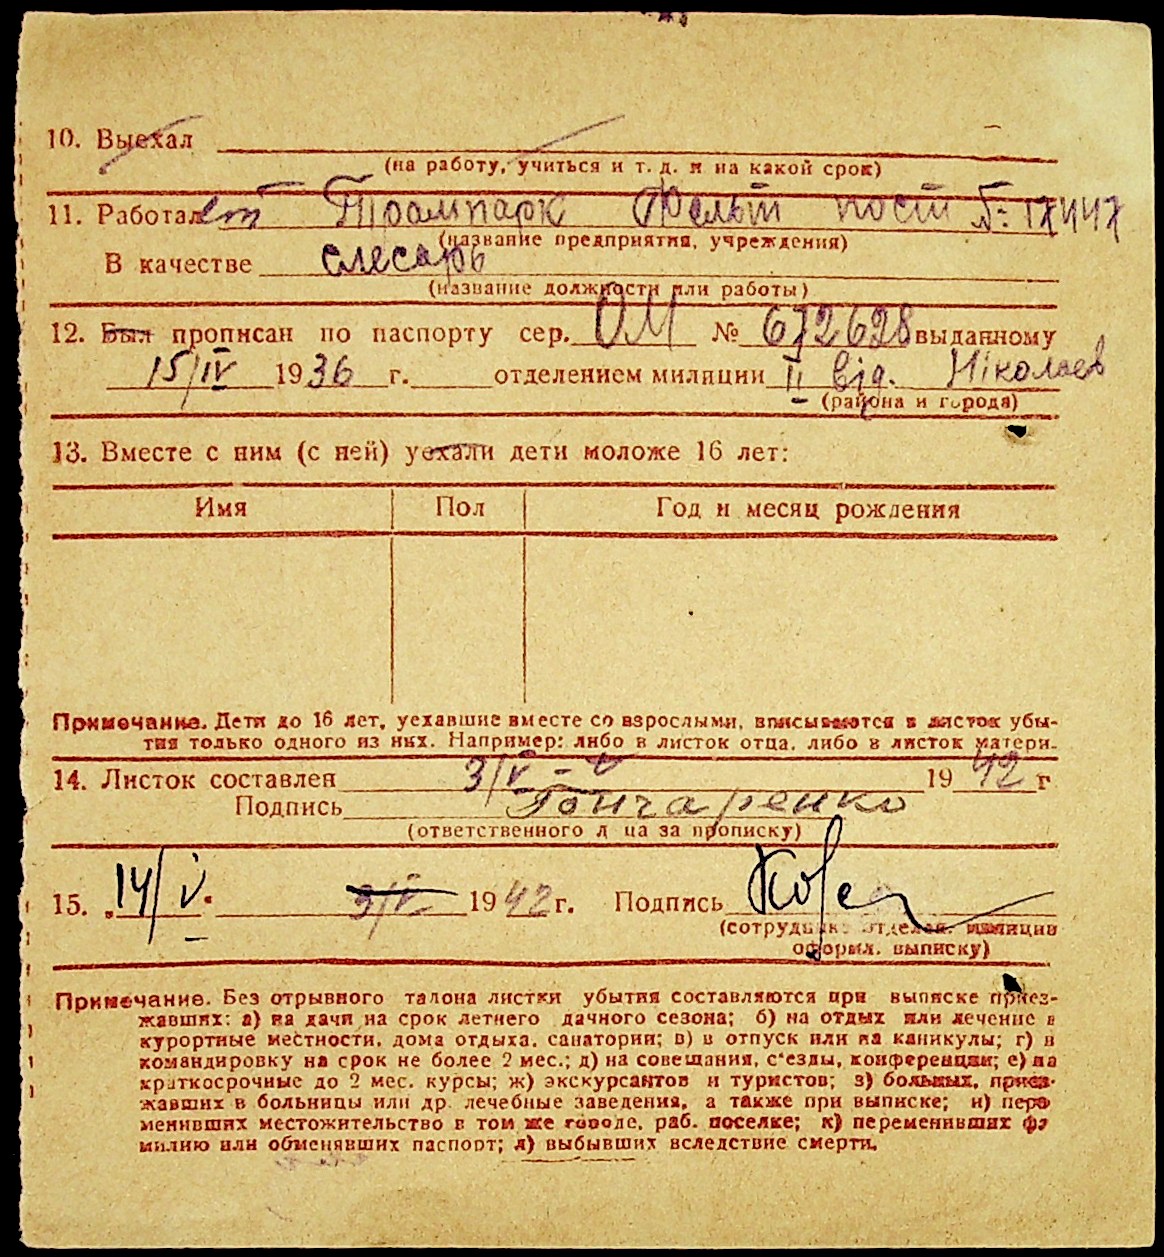 10. Выехал
(на работу, учиться и т. д. и на какой срок)
11. Работает Трампарк Фельт пост №: 17447
(название предприятия, учреждения)
В качестве слесарь
(название должности или работы)
12. Был прописан по паспорту сер. ОМ № 672628 выданному
15/IV 1936 г. отделением милиции II від. Ніколаев
(района и города)
13. Вместе с ним (с ней) уехали дети моложе 16 лет:
Имя Пол Год и месяц рождения
Примечание. Дети до 16 лет, уехавшие вместе со взрослыми, вписываются в листок убы-
тия только одного из них. Например: либо в листок отца, либо в листок матери.
14. Листок составлен 3/V – V 1942 г
Подпись Гончаренко
(ответственного л ца за прописку)
15. 14/V. 3/V 1942 г. Подпись
(сотрудник отделен. милиции
оформл. выписку)
Примечание. Без отрывного талона листки убытия составляются при выписке приез-
жавших: а) на дачи на срок летнего дачного сезона; б) на отдых или лечение в
курортные местности, дома отдыха, санатории; в) в отпуск или на каникулы; г) в
командировку на срок не более 2 мес.; д) на совещания, с'езды, конференции; е) на
краткосрочные до 2 мес. курсы; ж) экскурсантов и туристов; з) больных, приез-
жавших в больницы или др. лечебные заведения, а также при выписке; и) пере
менивших местожительство в том же городе, раб. поселке; к) переменивших фа
милию или обменявших паспорт; л) выбывших вследствие смерти.